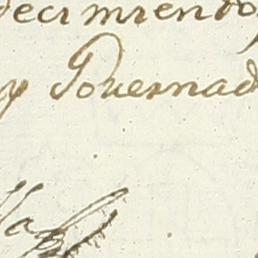 decimiendo
y Gouernad